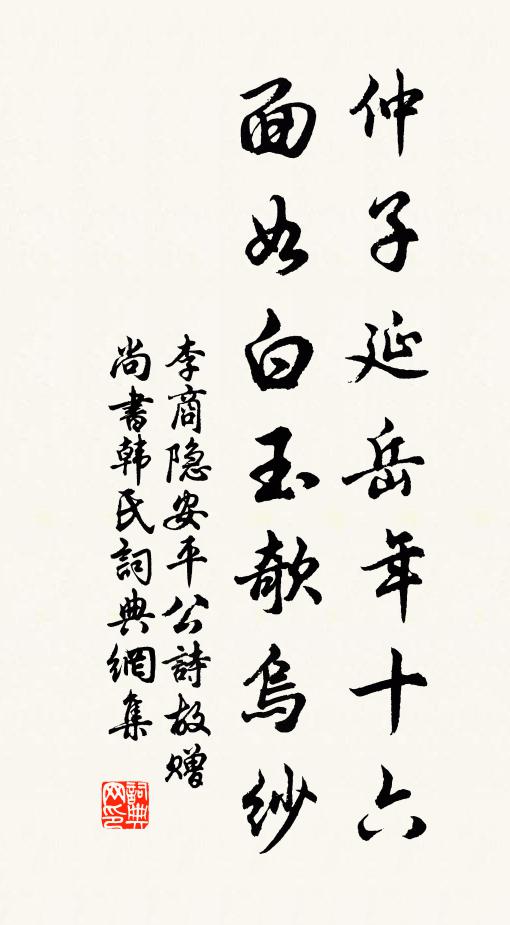 仲子延岳年十六
面如白玉欹乌纱
李商隐安平公詩故赠
尚書韩氏詞典網集
詞典网印